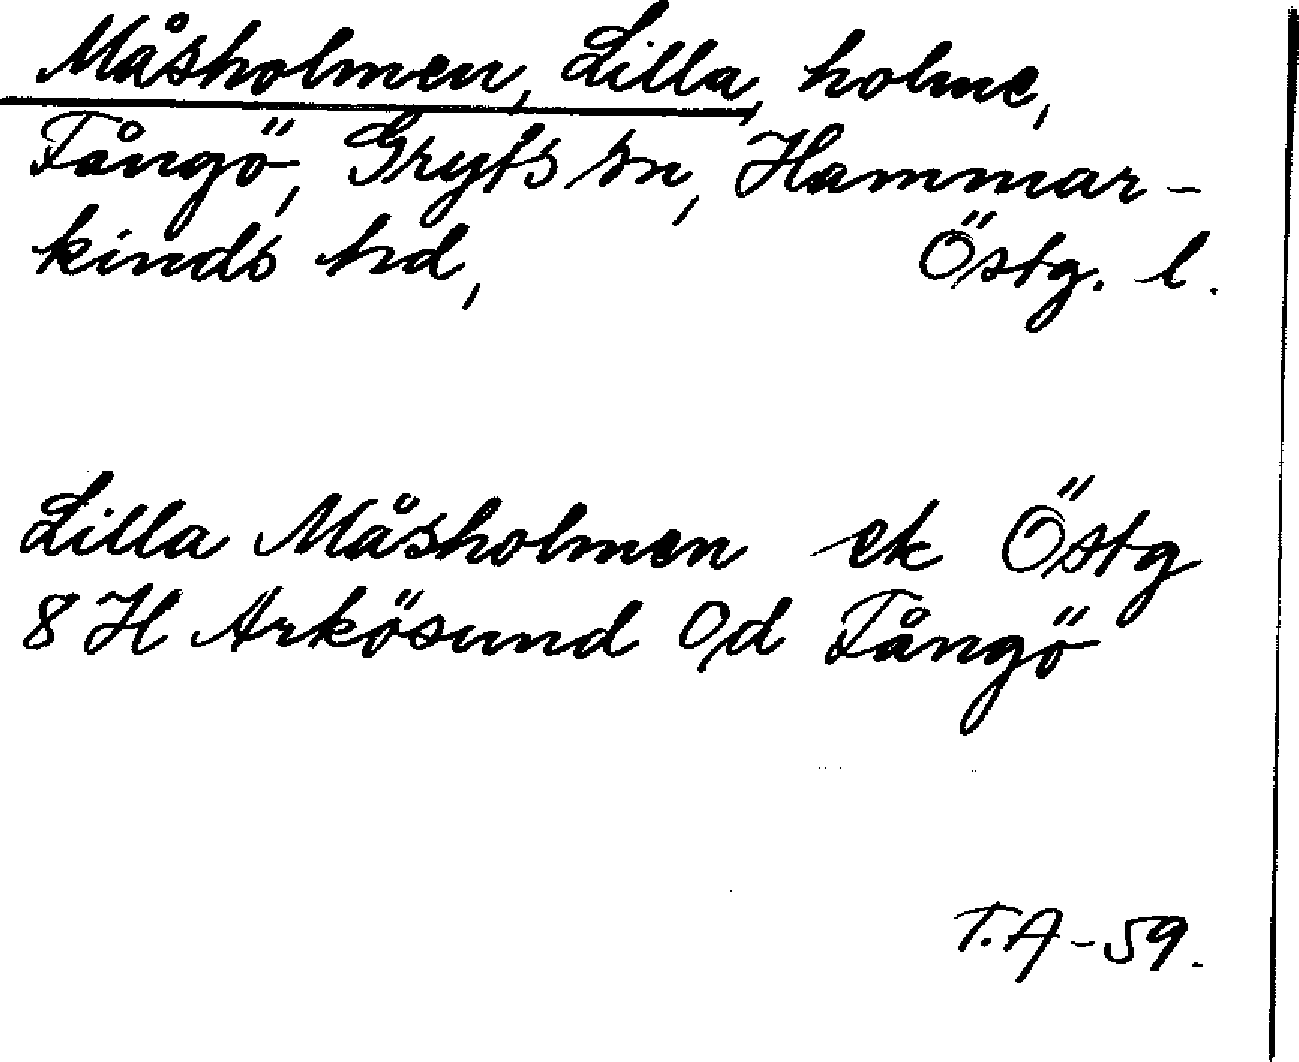 Måsholmen, Lilla, holme,
Fångö, Gryts sn, Hammar-
kinds hd, Östg. l.
Lilla Måsholmen ek Östg
8 H Arkösund O/d Fångö
T.A-59.